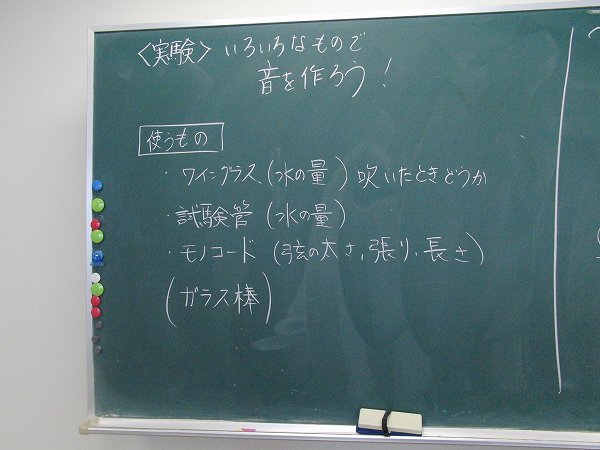 〈実験〉いろいろなもので
音を作ろう!
使うもの
・ワイングラス(水の量)吹いたときどうか
・試験管(水の量)
・モノコード(弦の太さ,張り,長さ)
(ガラス棒)